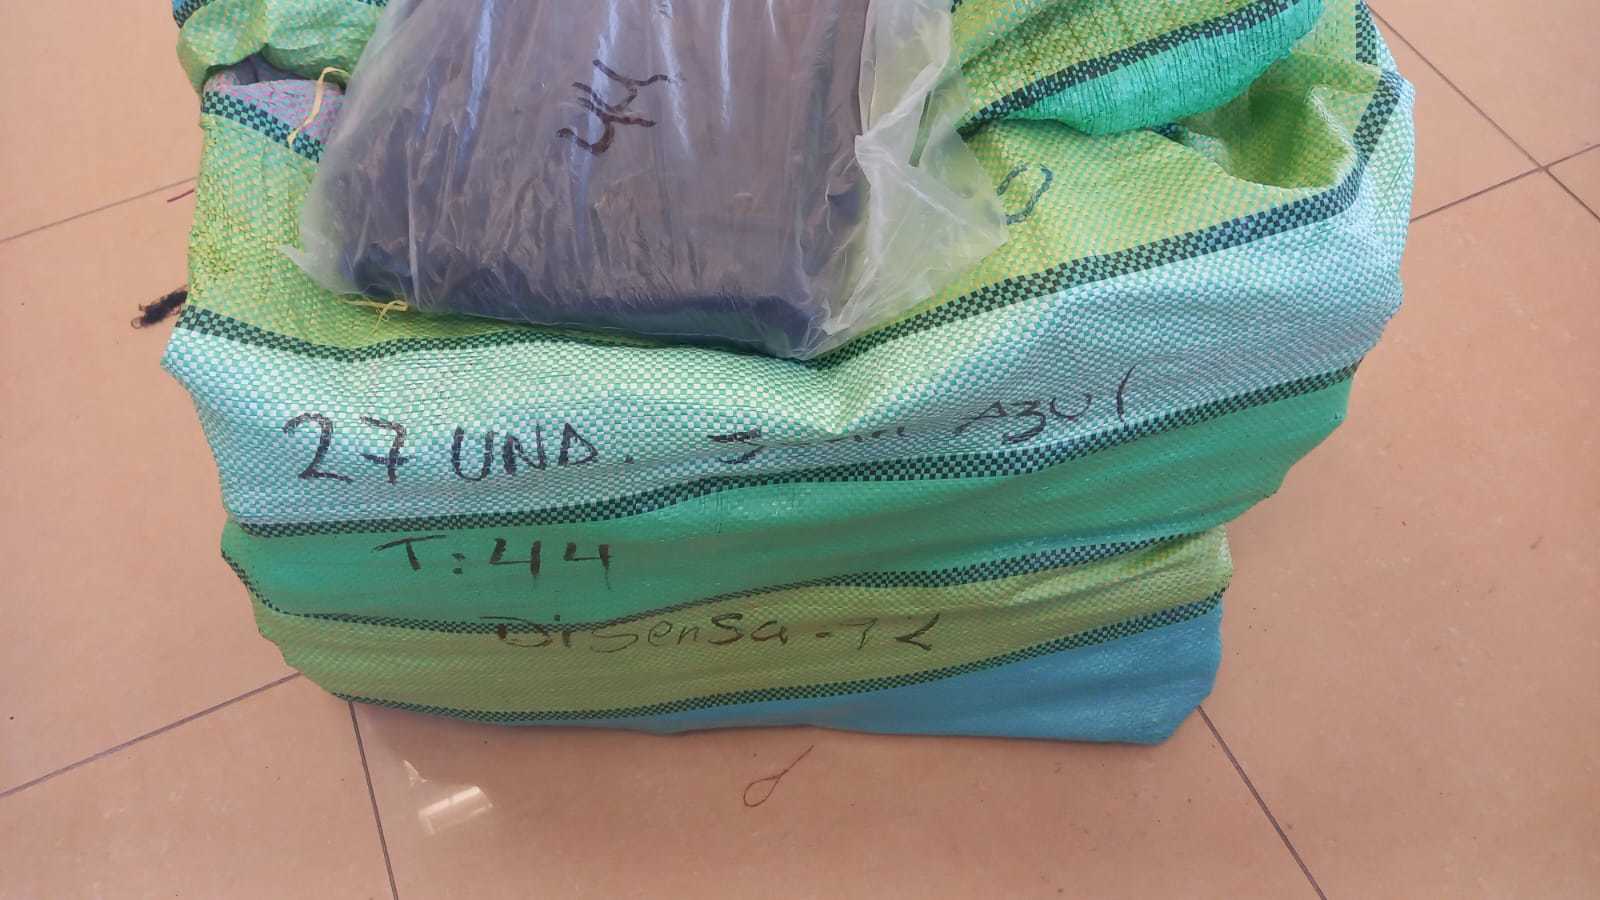 44
27 UND. Azul
T: 44
Disensa-12